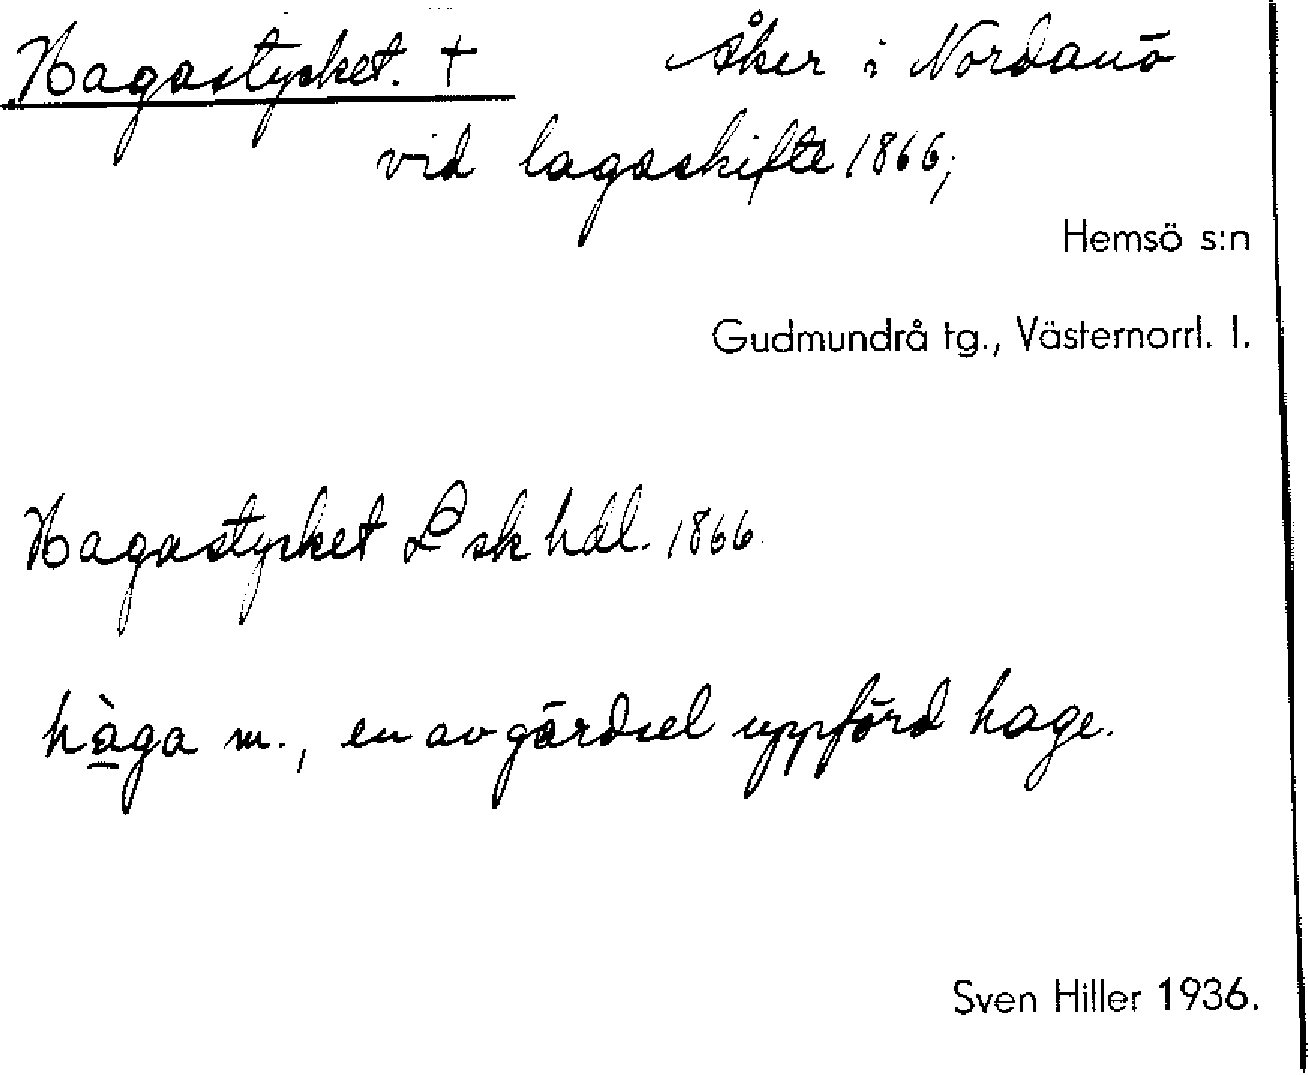 Hagastycket. † Åker i Nordanö
vid lagaskifte 1866;
Hemsö s:n
Gudmundrå tg., Västernorrl. l.
Hagastycket L sk hdl. 1866.
hàga m., en av gärdsel uppförd hage.
Sven Hiller 1936.